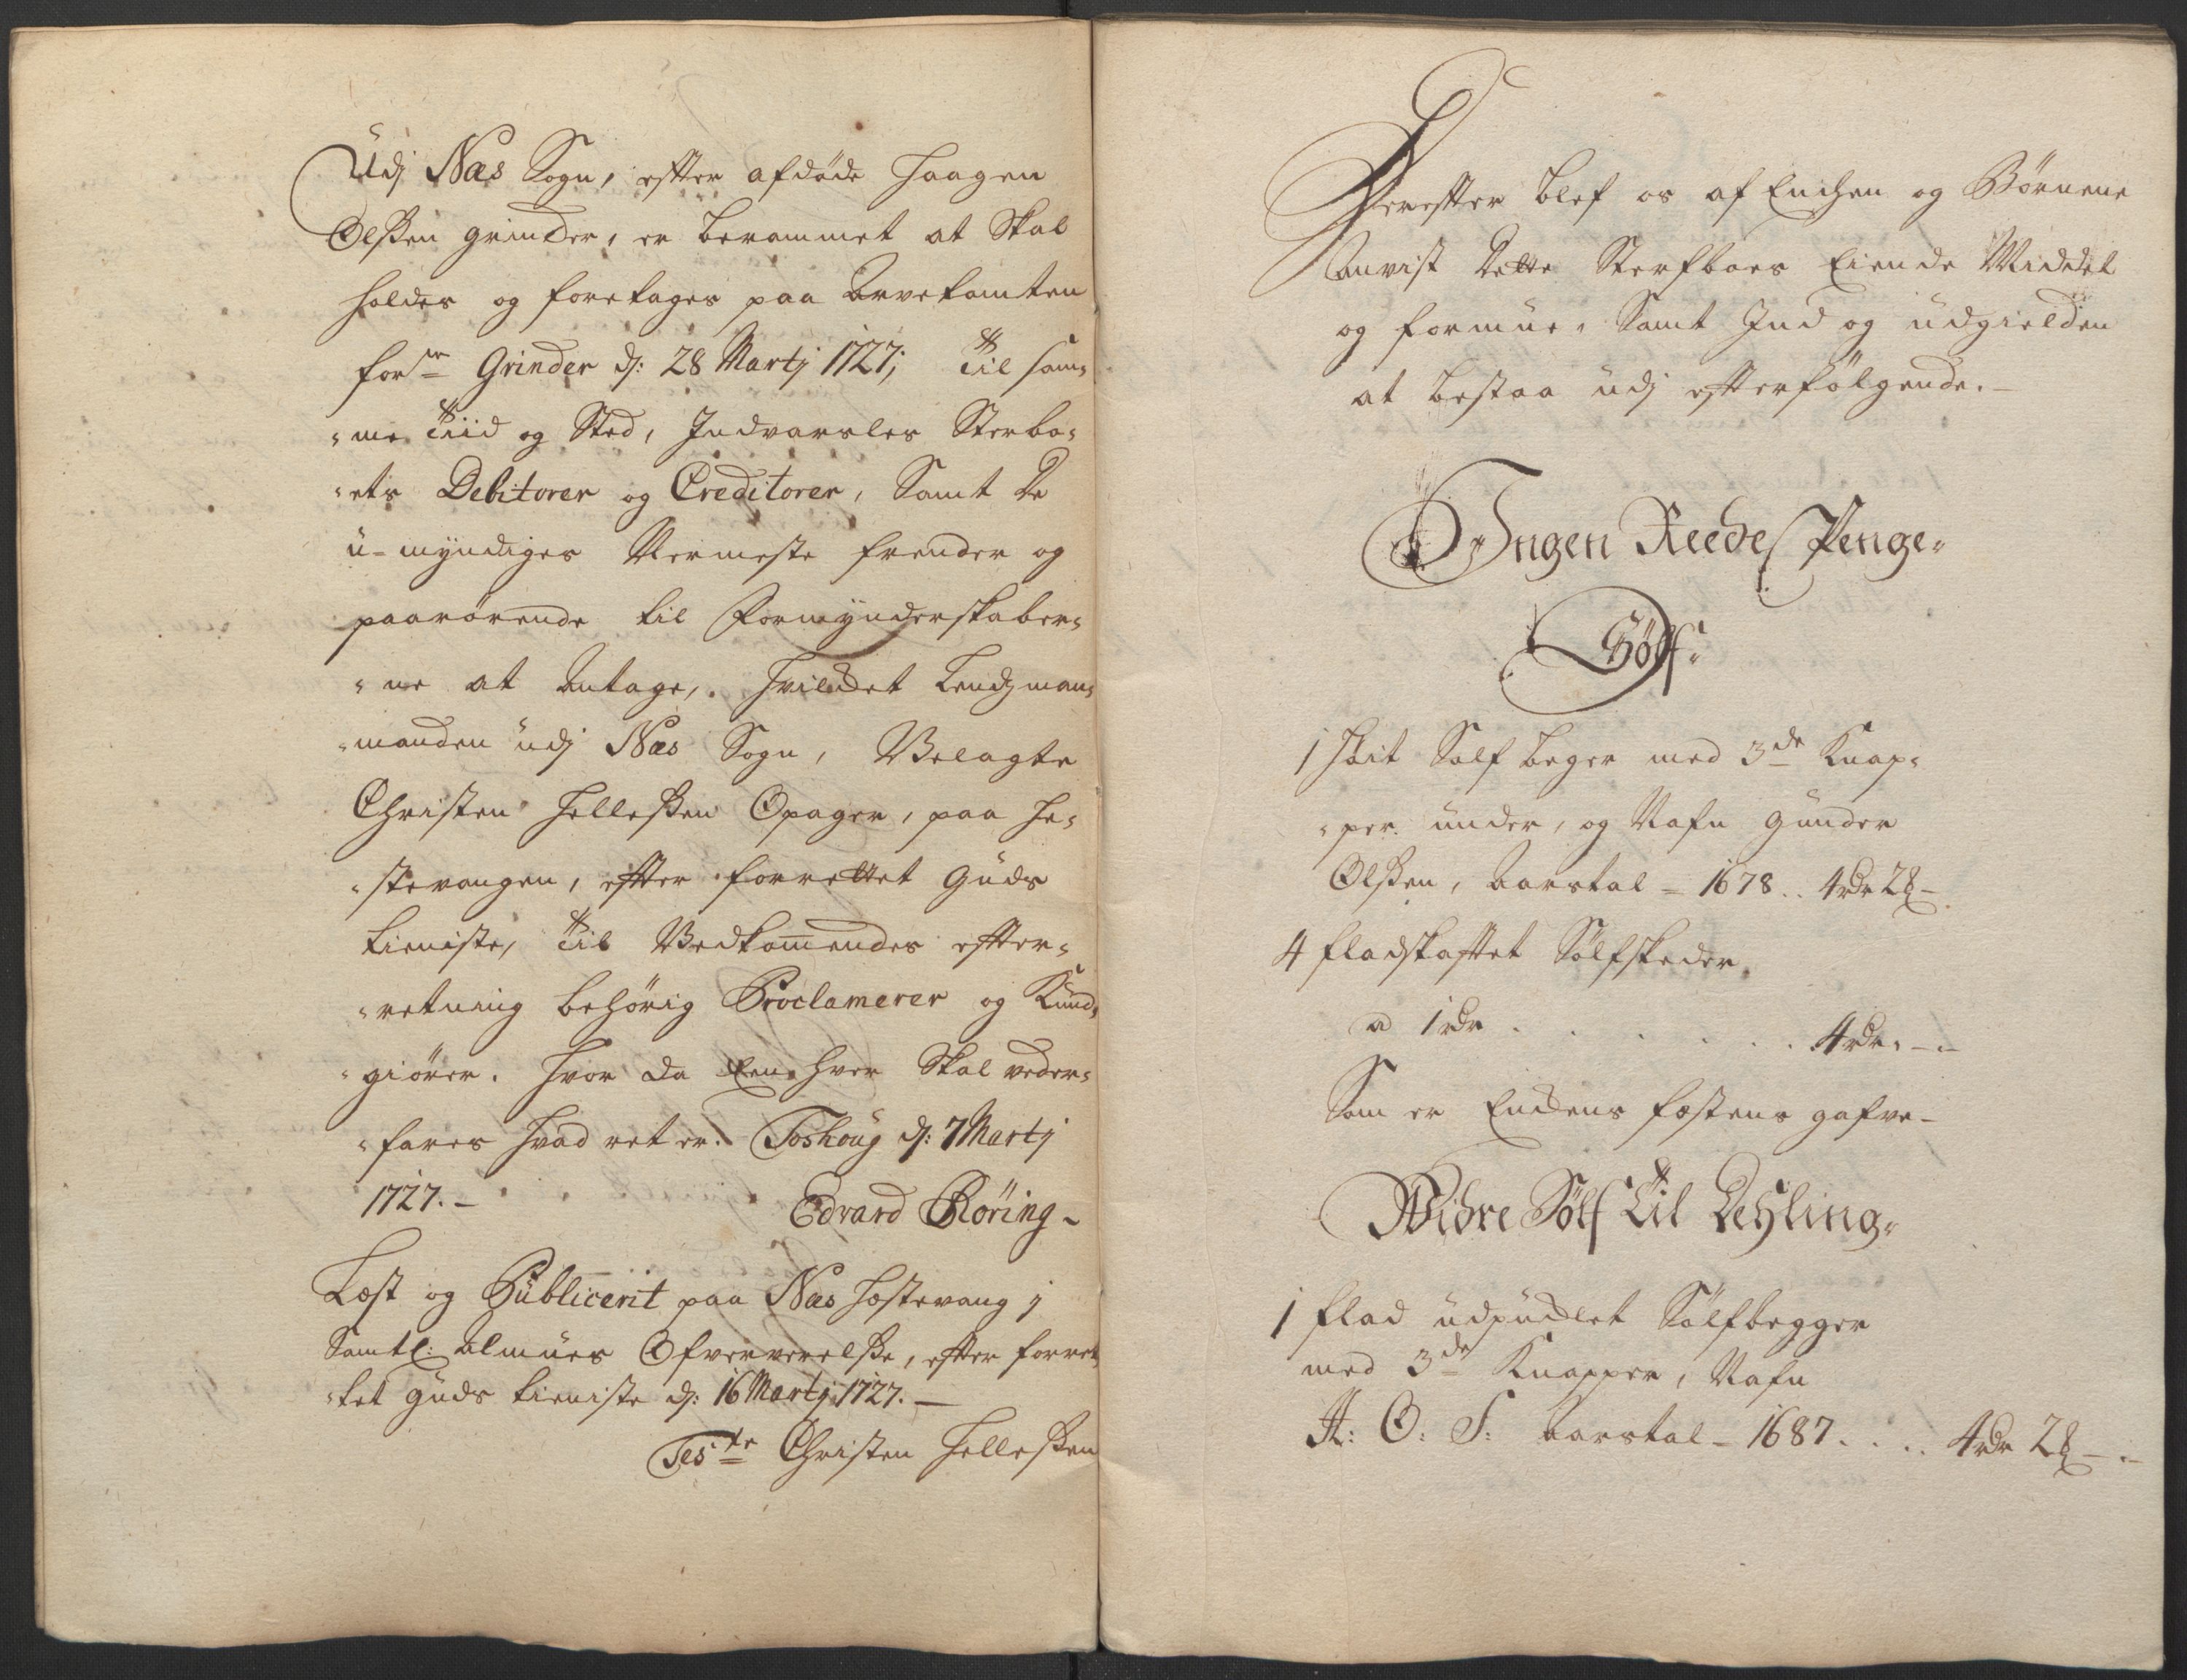 Udj Næs Sogn, efter afdøde Haagen
Olßen grinder, er berammet at Skal
holdes og foretages paa Arvetomten
forne Grinder dj: 28 Martj 1727; Til sam-
-me Tiid og Sted, Indvarsles Sterbo-
-ets Debitorer og Creditorer, Samt de
u-myndiges Nermeste frender og
paarørende til Formynderskaber-
-ne at Antage, hvilcket Lendsman-
-manden udj Næs Sogn, Welagte
Christen Helleßen Opager, paa He-
-stevangen, efter forrettet Guds
tieniste, Til Vedkommendes efter-
-retning behørig Proclamerer og Kund-
-giører. Hvor da Een hver Skal veder-
-fares hvad ret er. Toshoug dj: 7 Martj
1727.- Edvard Röring-
Læst og Publicerit paa Næs Hæstevang j
Samtl: Almues Ofververelße, efter forret-
-tet Guds tieniste dj: 16 Martj 1727.-
Teste Christen Helleßen
Derefter blef os af Enchen og Børnene
Anvist dette Sterfboes Eiende Middel
og formue, Samt Ind og udgielden
at bestaa udj efterfølgende.-
Ingen Reede Penge-
Sölf-
1 Hvit Sølf beger med 3de Knap-
-per under, og Nafn Gunder
Olßen, Aarstal - 1678 .. 4rdr 28-
4 fladskaftet Sölfskeder
a 1rdr . . . . . . 4rdr. -.-
Som er Enckens fæstens gafve-
Widre Sölf Til Dehling-
1 flad udpucklet Sölfbegger
med 3de Knapper, Nafn
A: O: S: Aarstal - 1687 . . . . 4rdr 28 -.-